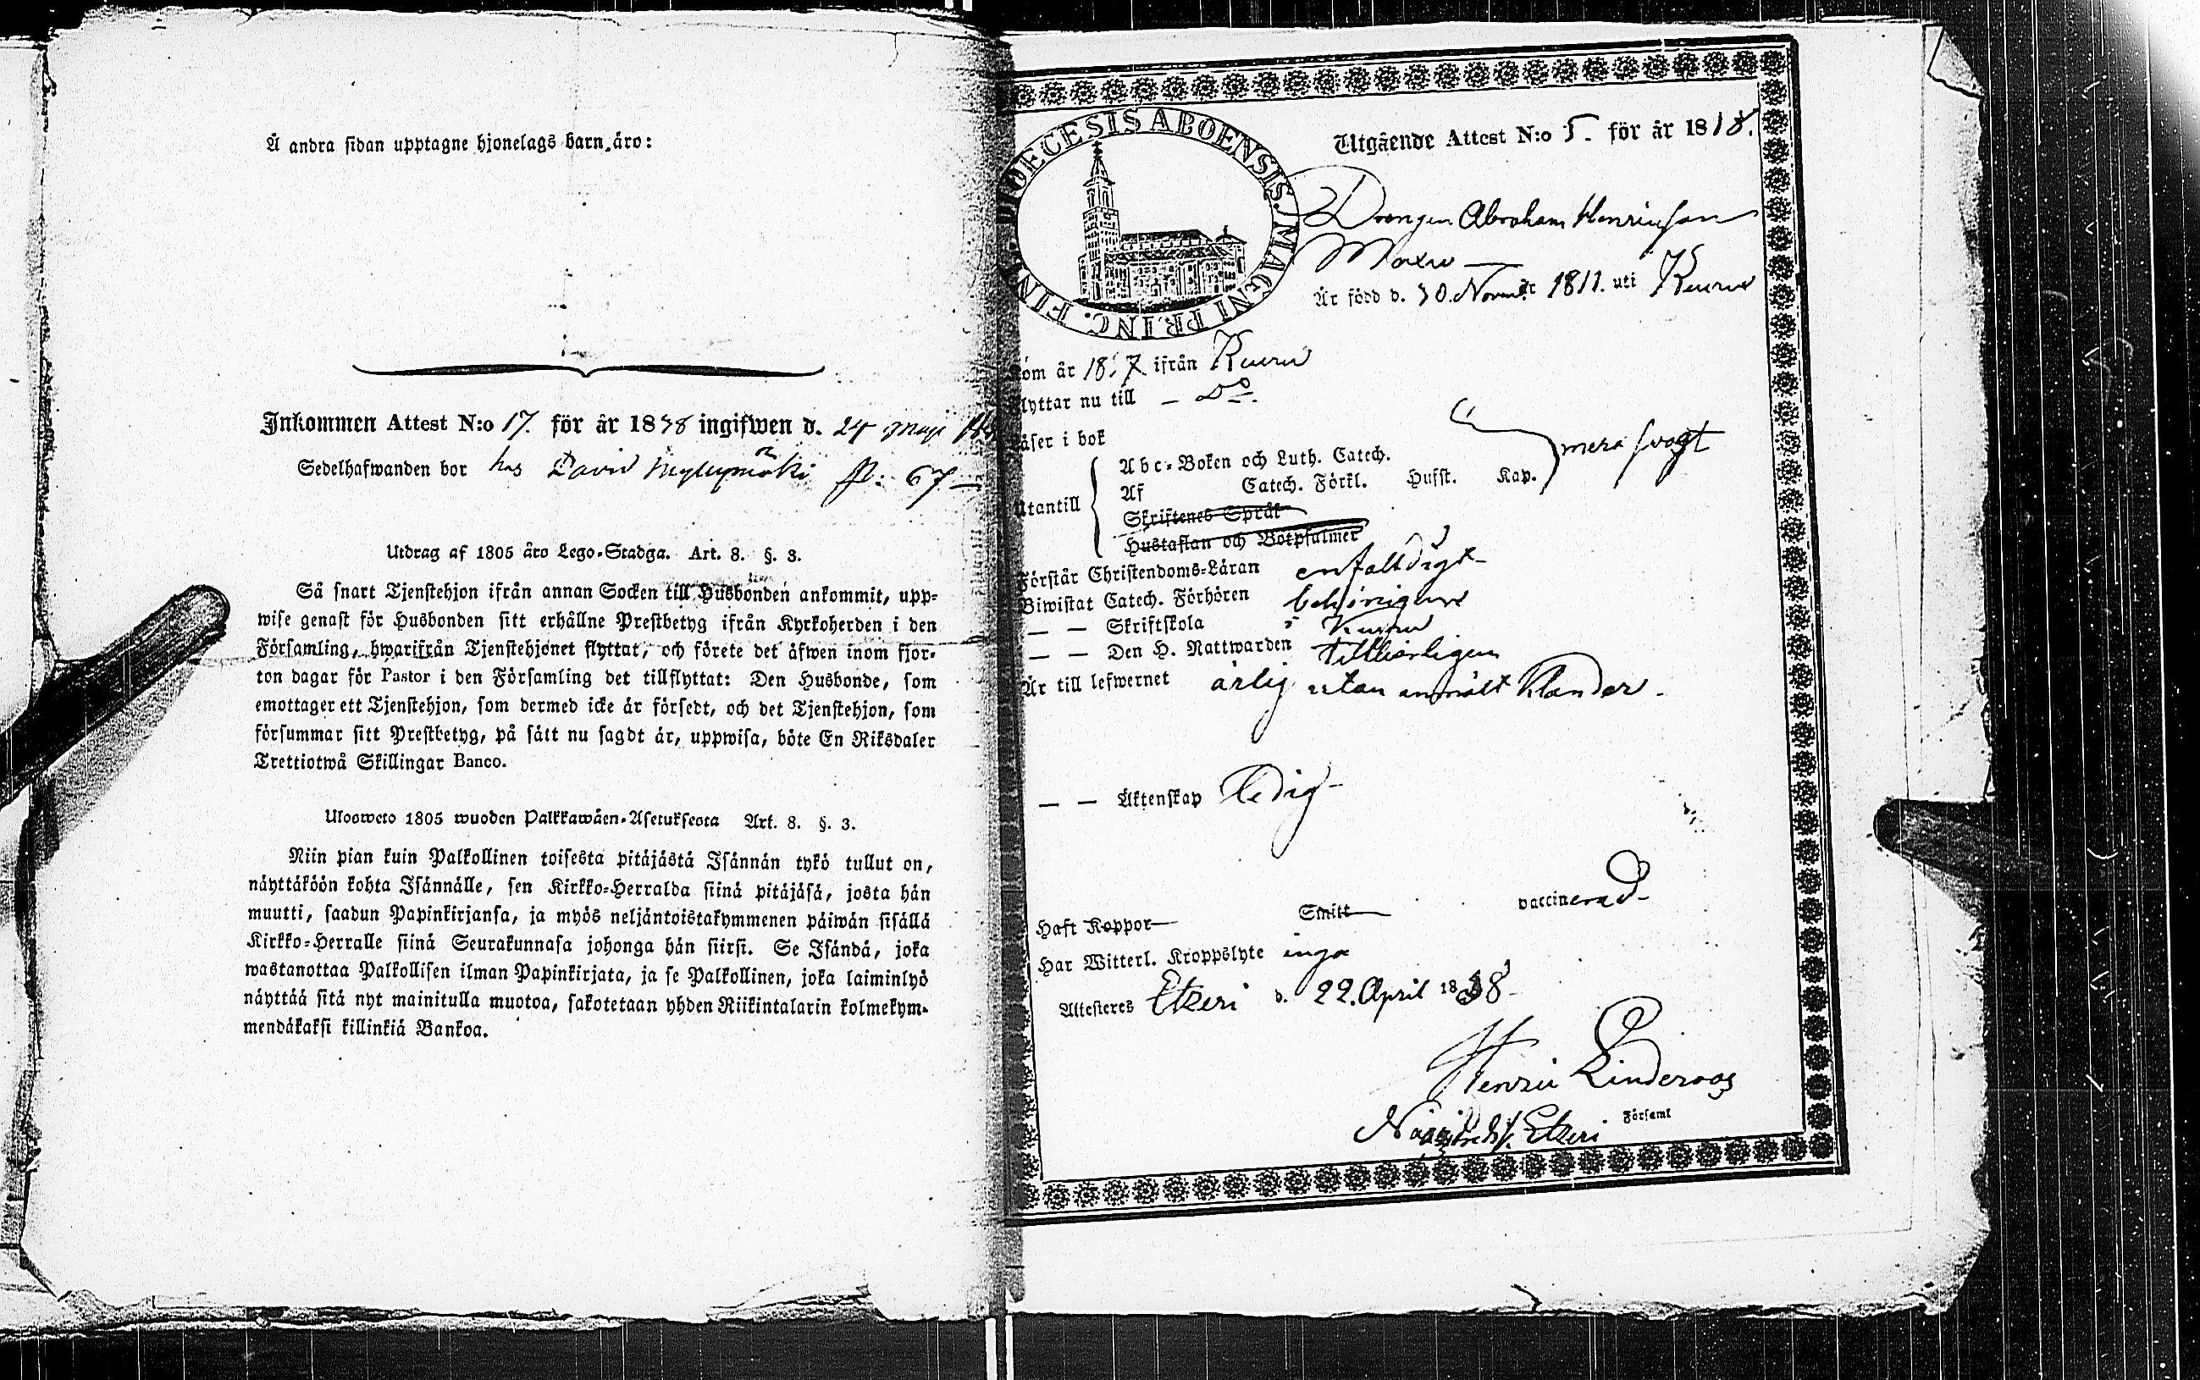 Å andra sidan upptagne hjonelags barn äro:
Inkommen Attest N:o 17. för år 1838 ingifwen d. 24 Maji
Sedelhafwanden bor hos David Myllymäki 67
Utdrag af 1805 års Lego-Stadga. Art. 8. §. 3.
Så snart Tjenstehjon ifrån annan Socken till Husbonden ankommit, upp-
wise genast för Husbonden sitt erhållne Prestbetyg ifrån Kyrkoherden i den
Församling, hwarifrån Tjenstehjonet flyttat, och förete det äfwen inom fjor-
ton dagar för Pastor i den Församling det tillflyttat: Den Husbonde, som
emottager ett Tjenstehjon, som dermed icke är försedt, och det Tjenstehjon, som
försummar sitt Prestbetyg, på sätt nu sagdt är, uppwisa, böte En Riksdaler
Trettiotwå Skillingar Banco.
Ulosweto 1805 wuoden Palkkawäen-Asetuksesta Art. 8. §. 3.
Niin pian kuin Palkollinen toisesta pitäjästä Isännän tykö tullut on,
näyttäköön kohta Isännälle, sen Kirkko-Herralda siinä pitäjäsä, josta hän
muutti, saadun Papinkirjansa, ja myös neljäntoistakymmenen päiwän sisällä
Kirkko-Herralle siinä Seurakunnasa johonga hän siirsi. Se Isändä, joka
wastanottaa Palkollisen ilman Papinkirjata, ja se Palkollinen, joka laiminlyö
näyttää sitä nyt mainitulla muotoa, sakotetaan yhden Riikintalarin kolmekym-
mendäkaksi killinkiä Bankoa.
DIOECESIS ABOENSIS. MAGNI PRINC. FINL.
Utgående Attest N:o 5. för år 1838.
Drengen Abraham Henricsson
Är född d. 30. Novembr 1811. uti Kuru
Kom år 1837 ifrån Kuru
Flyttar nu till — Do
Läser i bok
Utantill
Abc-Boken och Luth. Catech.
Af Catech. Förkl. Hufst. Kap.
mera svagt
Skriftenes Språk
Hustaflan och Botpsalmer
Förstår Christendoms-Läran enfaldigt
Biwistat Catech. Förhören behörigen
— — Skriftskola i Kuru
— — Den H. Nattwarden tillbörligen
Är till lefwernet ärlig utan anmält klander.
— — Äktenskap Ledig
Haft Koppor Smitt vaccinerad
Har Witterl. Kroppslyte inga
Attesteres Etzeri d. 22. April 1838
Henric Linderoos
Etzeri Församl